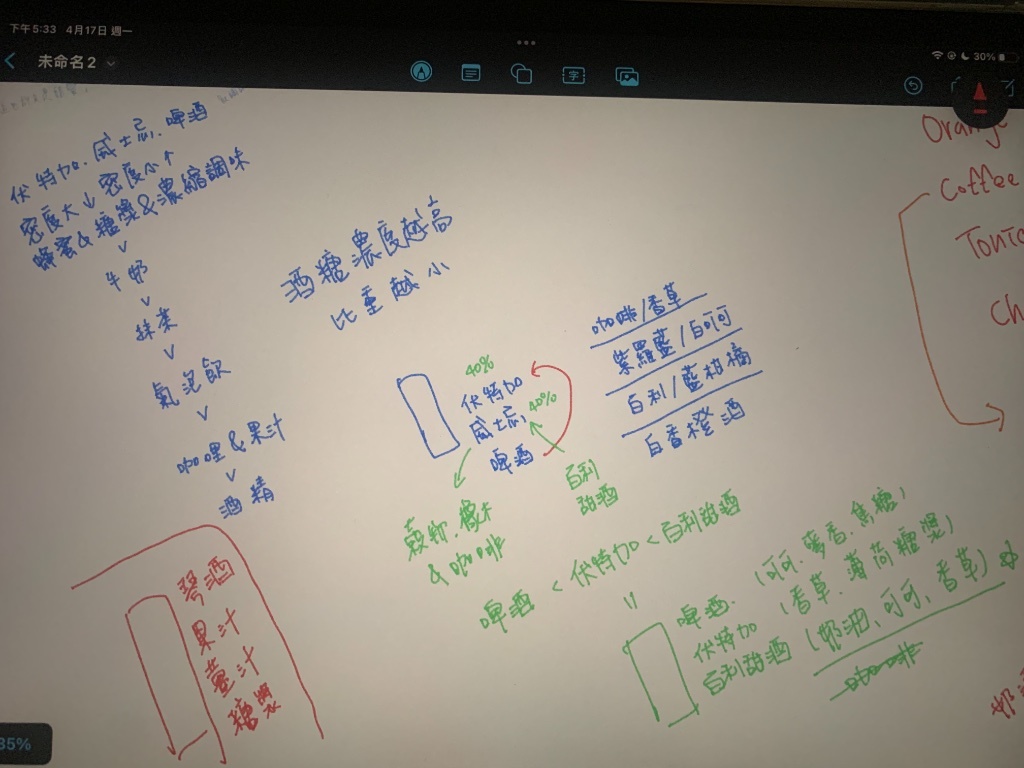 下午5:33 4月17日 週一
30%
未命名 2
字
伏特加.威士忌.啤酒
密度大↓密度小↑
蜂蜜&糖漿&濃縮調味
牛奶
抹茶
氣泡飲
咖哩&果汁
酒精
酒糖濃度越高
比重越小
40%
伏特加
威士忌,
40%
啤酒
百利
甜酒
& 咖啡
咖啡/香草
紫羅藍/白可可
百利/藍柑橘
白香橙酒
啤酒 < 伏特加 < 百利甜酒
=
啤酒. (可可.麥香.焦糖)
伏特加 (香草.薄荷糖漿)
百利甜酒 (奶油,可可,香草)
咖啡
琴酒
果汁
薑汁
糖漿
Orange
Coffee
Tonic
Ch
奶
35%